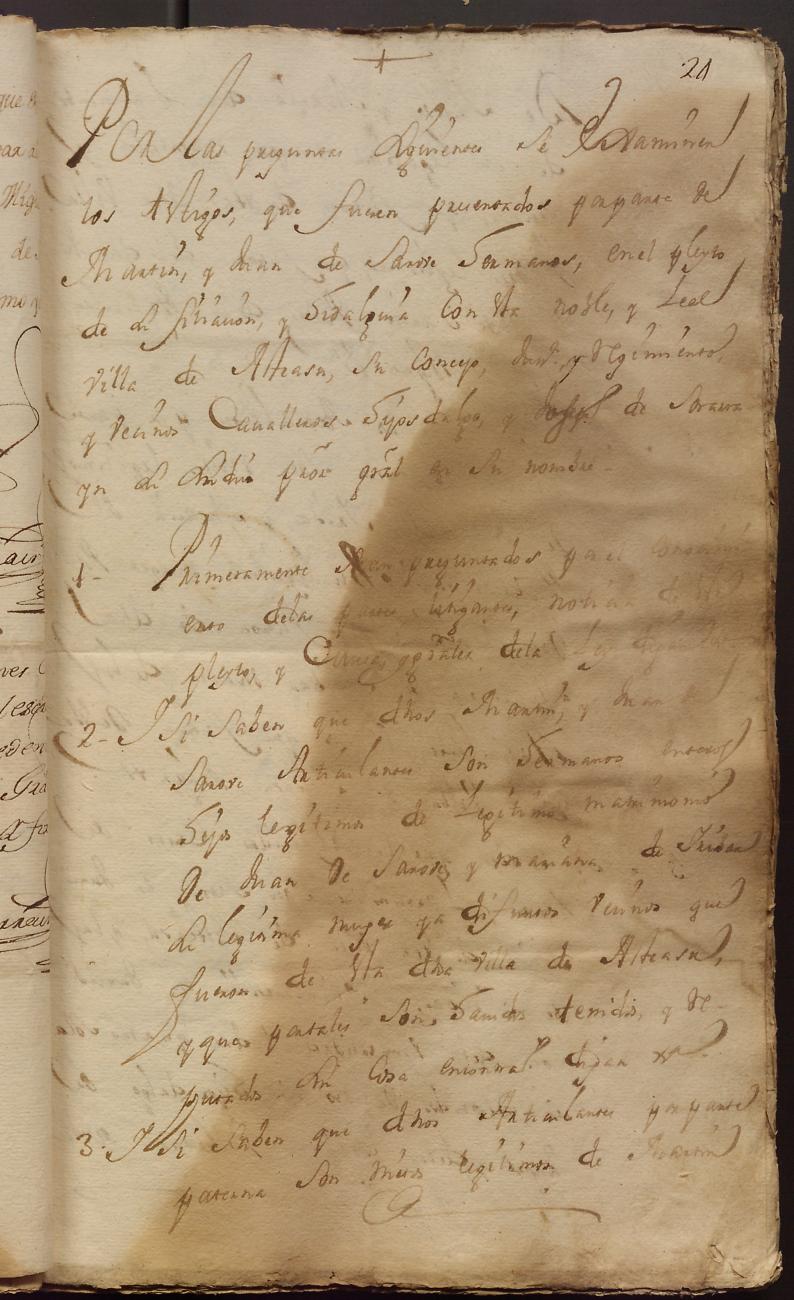 20
Por las preguntas siguientes se Examinen
los testigos, que fueren presentados por parte de
Martin, y Juan de Sarove hermanos, en el pleyto
de su filiacion, y hidalguia con sta noble, y Leal
villa de Alteasu, su Concejo, Just.ª y Regimiento,
y vecinos Cavalleros hijosdalgo, y Joseph de
yn su sindico pror gral en su nombre
1- Primeramente sean preguntados por el conocimi
ento de las partes litigantes, noticia de ste
pleyto, y grâles de la Ley
2- Y Si Saben que dhos Martin, y Juan de
Sarove Articulantes son hermanos enteros
hijos legitimos de Legitimo matrimonio
De Juan De Sarove, y mariana de
su legitima muger ya difuntos vecinos que
fueron de sta dha villa de Alteasu,
y que por tales son, havidos tenidos, y Re-
putados sin cosa en contrario digan &ª
3- Y Si Saben que dhos Articulantes por parte
paterna son nietos legitimos de Martin